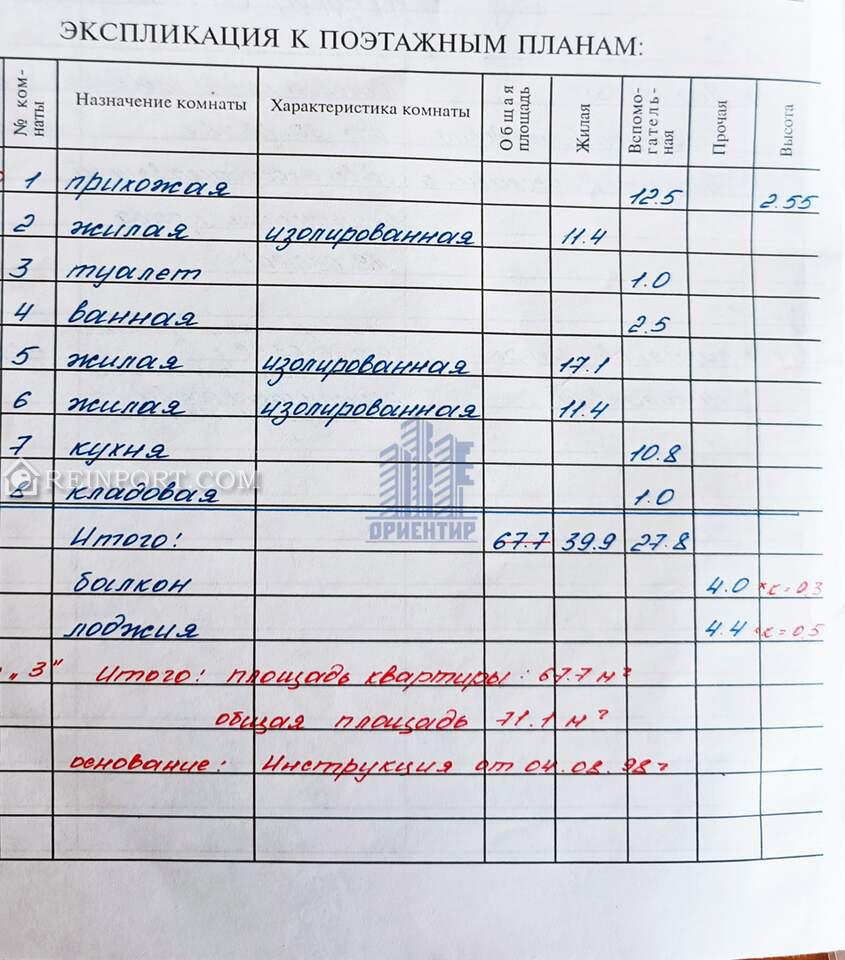 ЭКСПЛИКАЦИЯ К ПОЭТАЖНЫМ ПЛАНАМ:
№ ком-наты Назначение комнаты Характеристика комнаты Общая площадь Жилая Вспомо-гатель-ная Прочая Высота
1 прихожая 12.5 2.55
2 жилая изолированная 11.4
3 туалет 1.0
4 ванная 2.5
5 жилая изолированная 17.1
6 жилая изолированная 11.4
7 кухня 10.8
REINPORT.COM
8 кладовая 1.0
ОРИЕНТИР
Итого: 67.7 39.9 27.8
балкон 4.0 *к=0,3
лоджия 4.4 *к=0,5
„3" Итого: площадь квартиры: 67.7 м²
общая площадь 71.1 м²
основание: Инструкция от 04.08.98г